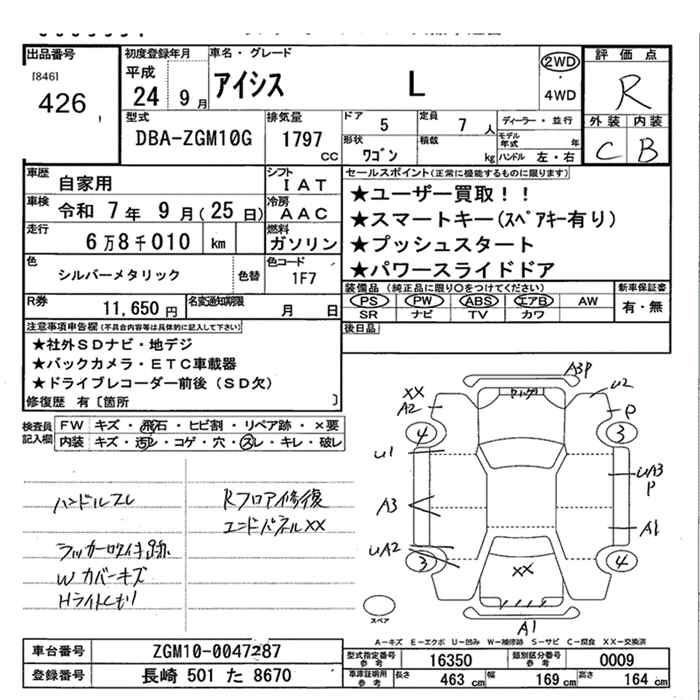 出品番号
[846]
426
初度登録年月
平成
24 9月
車名・グレード
アイシス L
2WD
4WD
評価点
R
外装 内装
C B
型式
DBA-ZGM10G
排気量
1797 cc
ドア
5
定員
7 人
ディーラー・並行
形状
ワゴン
積載
kg
モデル年式
年
ハンドル 左・右
車歴
自家用
シフト
IAT
車検
令和 7年 9月(25日)
冷房
AAC
走行
6万8千010 km
燃料
ガソリン
色
シルバーメタリック
色替
色コード
1F7
R券
11,650円
名変通知期限
月 日
セールスポイント(正常に機能するものに限ります)
★ユーザー買取!!
★スマートキー(スペアキー有り)
★プッシュスタート
★パワースライドドア
装備品(純正品に限り○をつけてください)
新車保証書
PS PW ABS エアB AW
SR ナビ TV カワ
有・無
後日品
注意事項申告欄(不具合内容等は具体的に記入して下さい)
★社外SDナビ・地デジ
★バックカメラ・ETC車載器
★ドライブレコーダー前後(SD欠)
修復歴 有〔箇所 〕
検査員記入欄
FW キズ・飛石・ヒビ割・リペア跡・×要
内装 キズ・汚レ・コゲ・穴・スレ・キレ・破レ
ハンドルスレ
ラッカー吹付跡
Wカバーキズ
Hライトくもり
Rフロア修復
エンドパネルXX
A3P
XX
A2
U2
P
4
3
U1
UA3
P
A3
A1
UA2
3
4
XX
A1
スペア
A−キズ E−エクボ U−凹み W−補修跡 S−サビ C−腐食 XX−交換済
車台番号
ZGM10-0047287
登録番号
長崎 501 た 8670
型式指定番号
参考
16350
類別区分番号
参考
0009
車庫証明用
参考
長さ 463 cm
幅 169 cm
高さ 164 cm